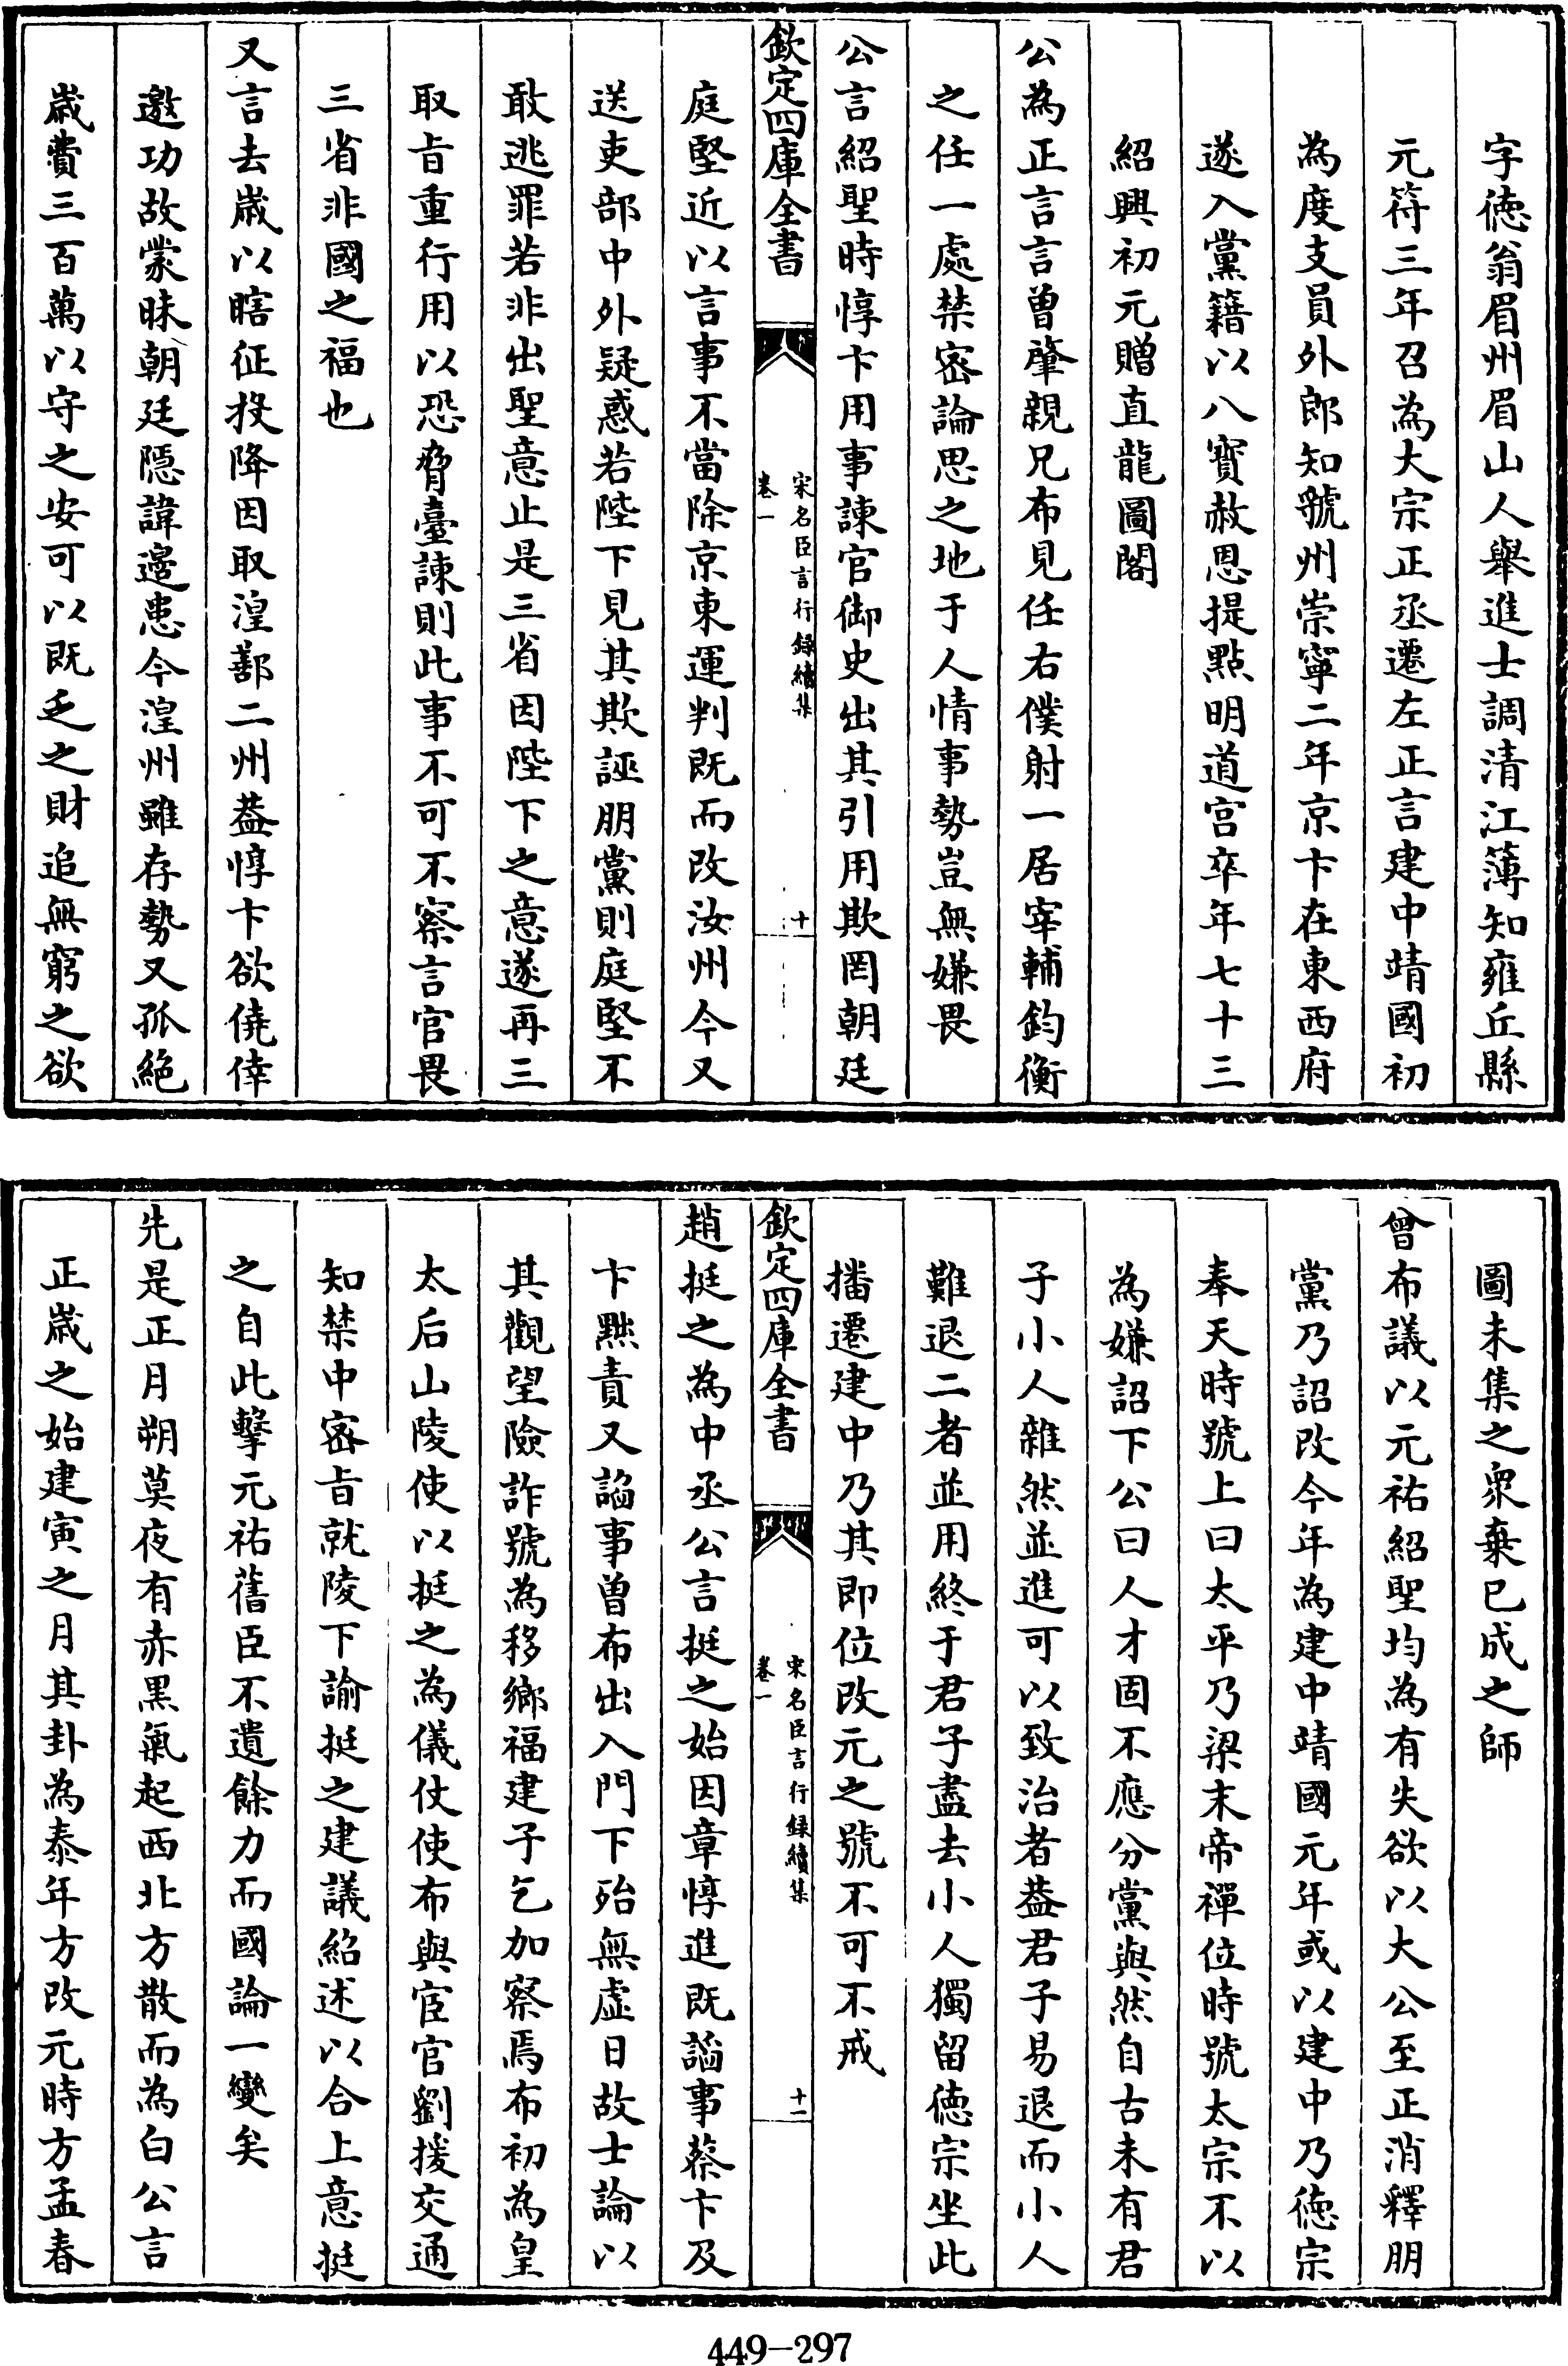 字徳翁眉州眉山人舉進士調清江簿知雍丘縣
元符三年召為大宗正丞遷左正言建中靖國初
為度支員外郎知虢州崇寧二年京卞在東西府
遂入黨籍以八寳赦恩提點明道宫卒年七十三
紹興初元贈直龍圖閣
公為正言言曾肇親兄布見任右僕射一居宰輔鈞衡
之任一處禁宻論思之地于人情事勢豈無嫌畏
公言紹聖時惇卞用事諫官御史出其引用欺罔朝廷
欽定四庫全書
宋名臣言行録續集
卷一
十
庭堅近以言事不當除京東運判既而改汝州今又
送吏部中外疑惑若陛下見其欺誣朋黨則庭堅不
敢逃罪若非出聖意止是三省因陛下之意遂再三
取旨重行用以恐脅臺諫則此事不可不察言官畏
三省非國之福也
又言去嵗以瞎征投降因取湟鄯二州葢惇卞欲僥倖
邀功故蒙昧朝廷隱諱邉患今湟州雖存勢又孤絶
嵗費三百萬以守之安可以既乏之財追無窮之欲
圖未集之衆棄已成之師
曾布議以元祐紹聖均為有失欲以大公至正消釋朋
黨乃詔改今年為建中靖國元年或以建中乃徳宗
奉天時號上曰太平乃梁末帝禪位時號太宗不以
為嫌詔下公曰人才固不應分黨與然自古未有君
子小人雜然並進可以致治者葢君子易退而小人
難退二者並用終于君子盡去小人獨留徳宗坐此
播遷建中乃其即位改元之號不可不戒
欽定四庫全書
宋名臣言行録續集
卷一
十一
趙挺之為中丞公言挺之始因章惇進既諂事蔡卞及
卞黜責又諂事曾布出入門下殆無虚日故士論以
其觀望險詐號為移鄉福建子乞加察焉布初為皇
太后山陵使以挺之為儀仗使布與宦官劉援交通
知禁中宻旨就陵下諭挺之建議紹述以合上意挺
之自此擊元祐舊臣不遺餘力而國論一變矣
先是正月朔莫夜有赤黒氣起西北方散而為白公言
正嵗之始建寅之月其卦為泰年方改元時方孟春
449-297